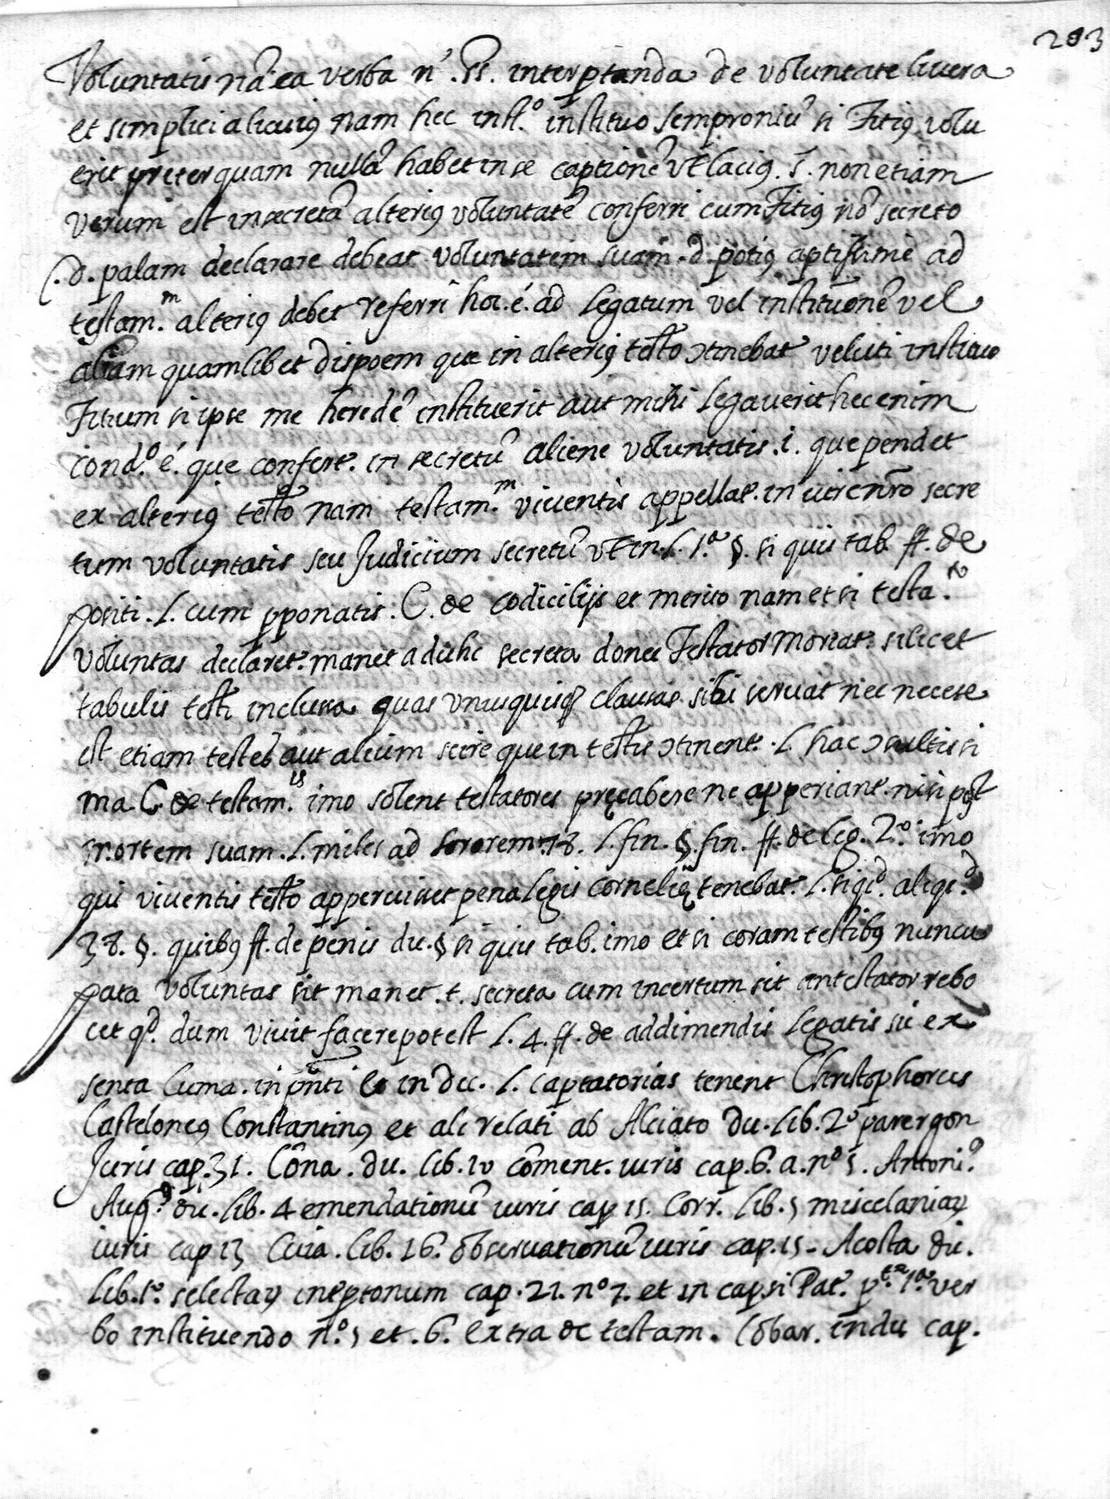 203
Voluntatis nã. ea verba n̄. ss. interp̱tanda de voluntate livera
et simplici alicuiꝰ nam hec inst.º instituo semproniũ si Titiꝰ volu
erit preterquam nullã habet in se captionẽ vt laciꝰ. s̄. non etiam
verum est in secretã alteriꝰ voluntatẽ conferri cum Titiꝰ nõ secreto
s.d. palam declarare debeat voluntatem suam .d. potiꝰ aptissime ad
testam.m alteriꝰ debet referri hoc .é. ad legatum vel institutionẽ vel
aliam quamlibet dispoem que in alteriꝰ testo ɔtinebat veluti instituo
Titium si ipse me heredẽ instituerit aut mihi legaverit hec enim
cond.º é. que confert. in secretũ aliene voluntatis .i. que pendet
ex alteriꝰ testo nam testam.m viventis appellat. in iure nrõ secre
tum voluntatis seu Judicium secretũ vt in .L. 1.ª §. si quis tab ff. de
positi .L. cum p̱ponatis . C. de codicilijs et merito nam et si testa.to
voluntas declaret. manet adihc secreta donec Testator moriat. silicet
tabulis testi inclusa quas vnusquisq̃ clausas sibi servat nec necese
est etiam testes aut alium scire que in testis ɔtinent. L. hac ɔsultissi
ma C. de testam.is imo solent testatores precabere ne apperiant. nisi post
mortem suam . L. miles ad sororem 78. L. fin. §. fin. ff. de leg. 2.º imo
qui viventis testo apperuisset pena Legis corneliȩ tenebat. L. siqi.d aliqi.d
38. §. quibꝰ ff. de penis du. § si quis tab. imo et si coram testibꝰ nuncu
pata voluntas sit manet .t. secreta cum incertum sit an testator rebo
cet q.d dum vivit facere potest L. 4. ff. de addimendis Legatis sic ex
senta luma. in pñti in du. L. captatorias tenent Christophorus
Casteloneꝰ Constantinꝰ et alij relati ab Alciato du. lib. 2º parergon
Juris cap. 31. Cõna . du. lib. 10 cõment. iuris cap. 6. a. nº 5. Antoni.ꝰ
Aug.ꝰ du. lib. 4 emendationũ iuris cap 15. Corr. lib. 5 miscelaniaꝝ
iuris cap 13 Cuia . lib. 16. observationũ iuris cap. 15. Acosta du.
lib. 1.º selectaꝝ inep̱tonum cap. 21. nº 7. et in cap. si Pat. p.te 1.ª ver
bo instituendo n.º 5 et . 6. extra de testam. Cobar. in du cap.